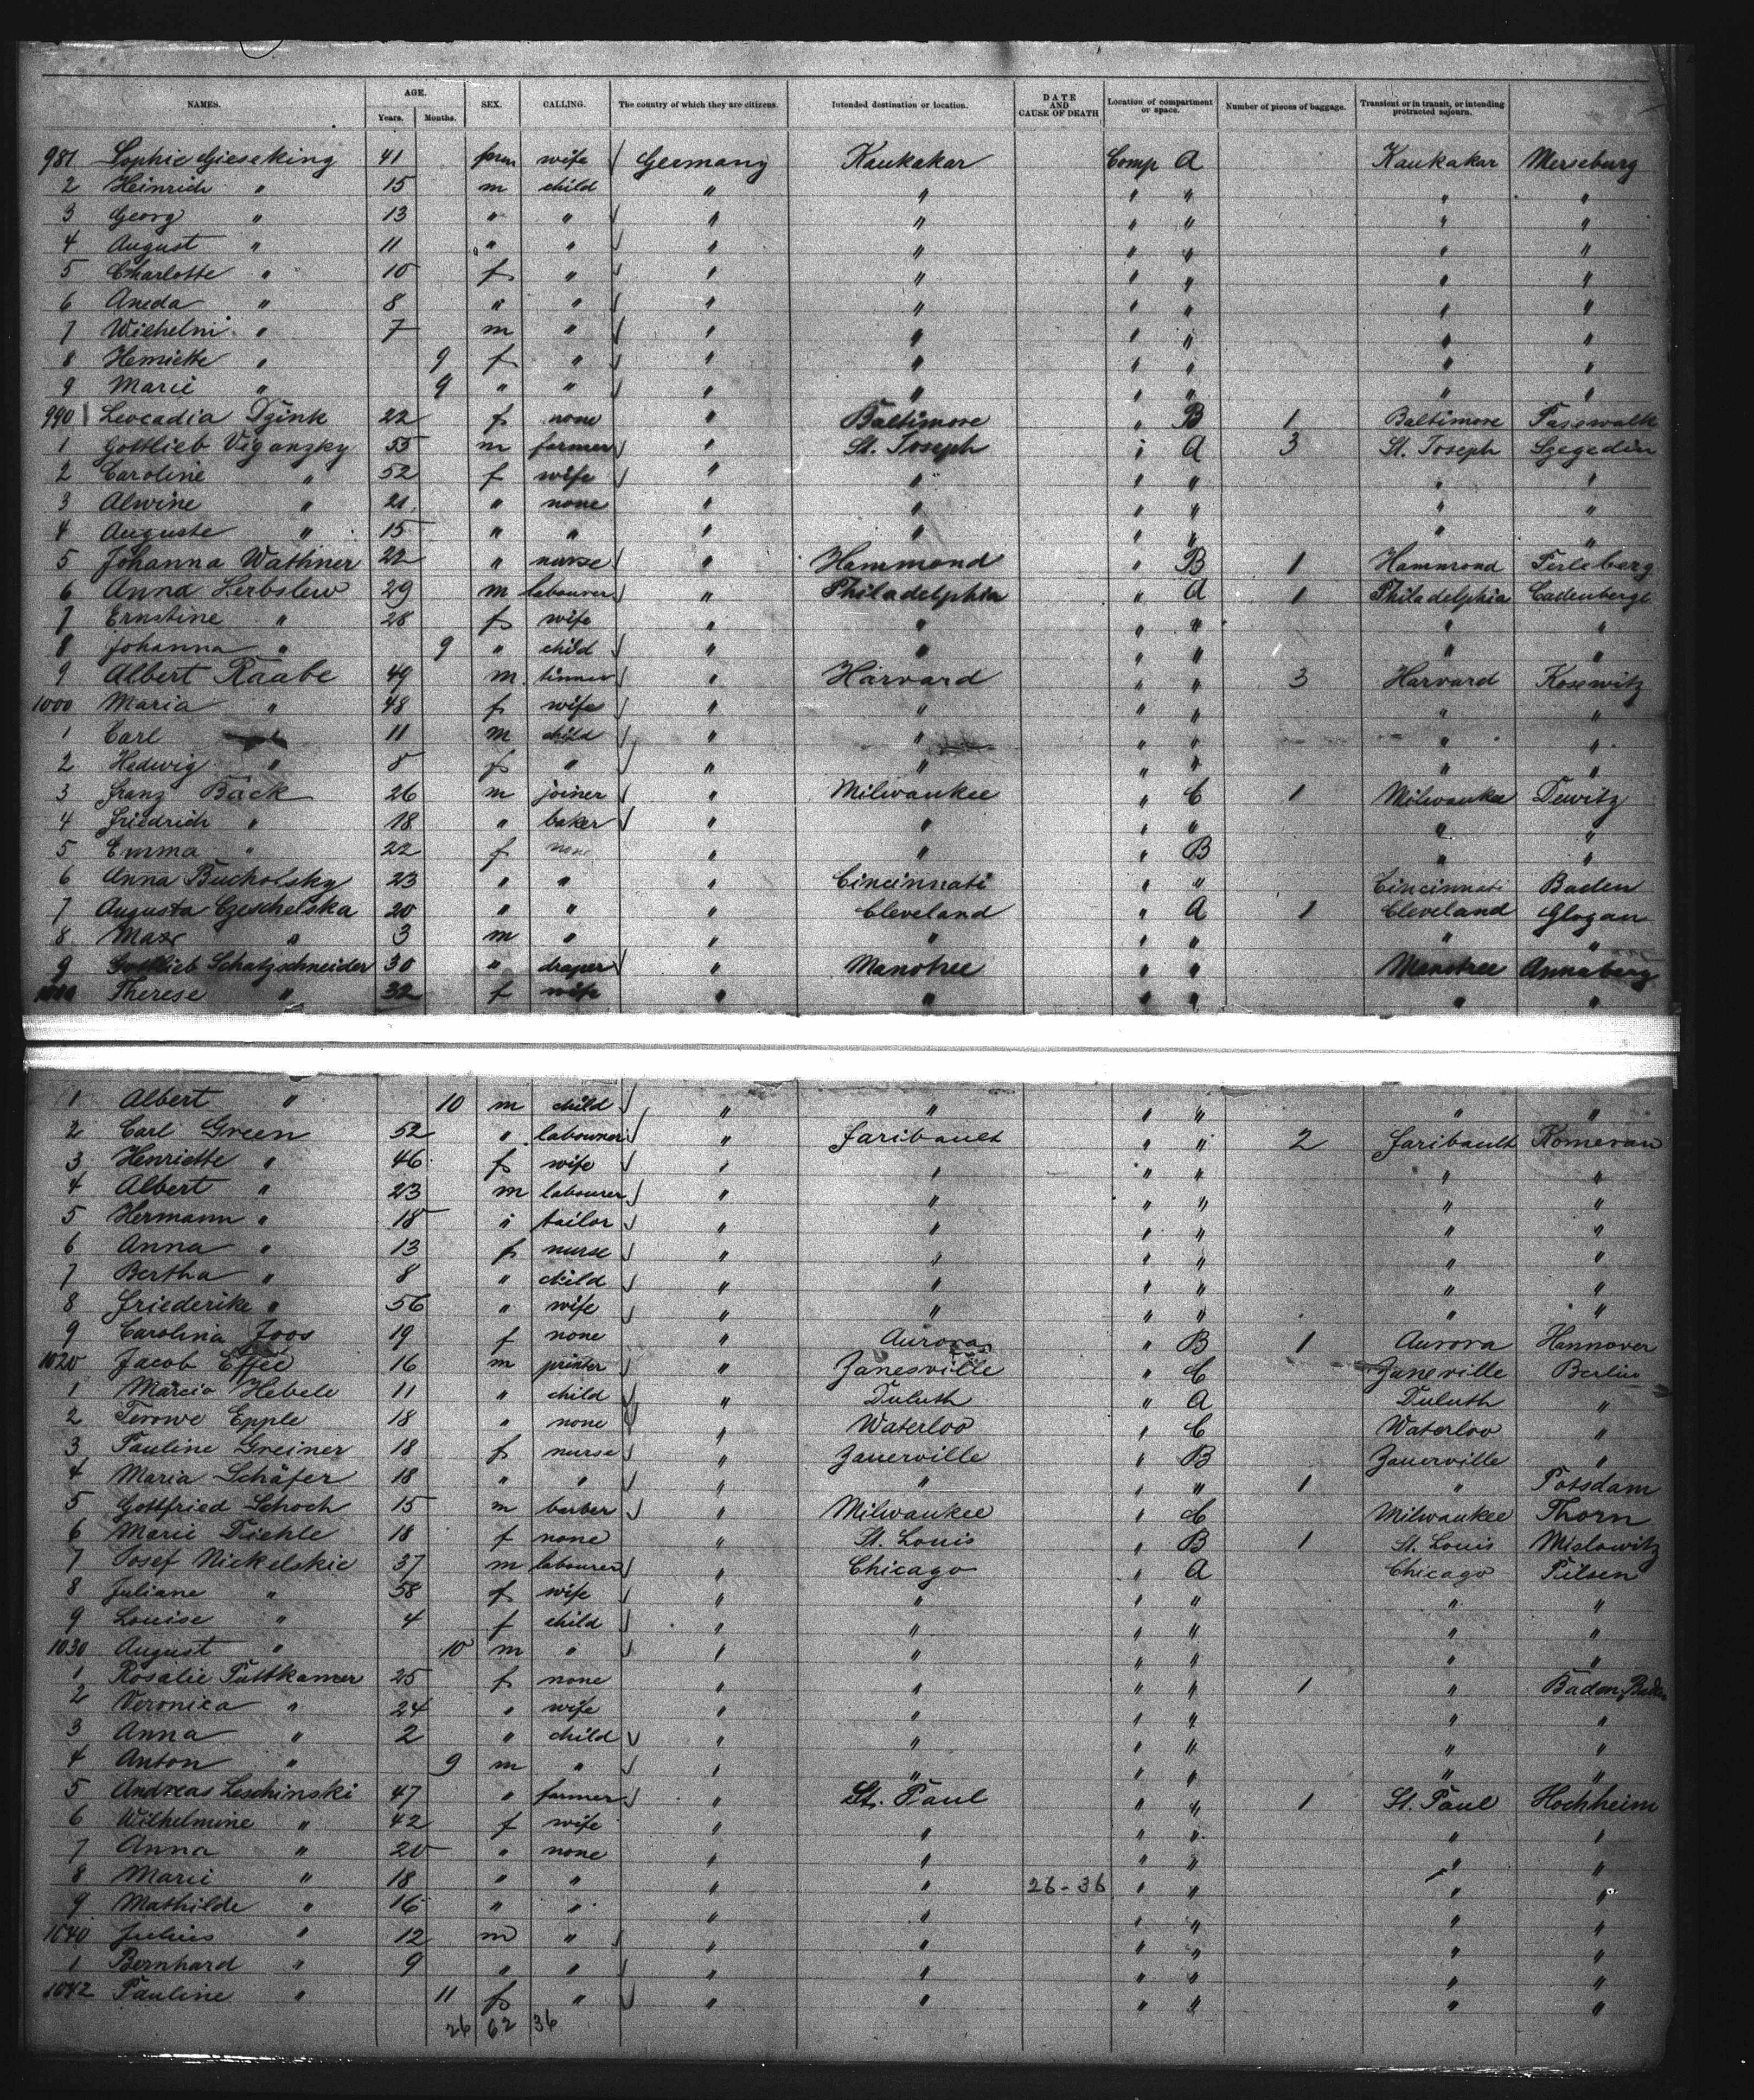 NAMES. AGE. Years. Months. SEX. CALLING. The country of which they are citizens. Intended destination or location. DATE AND CAUSE OF DEATH Location of compartment or space. Number of pieces of baggage. Transient or in transit, or intending protracted sojourn.
981 Sophie Gieseking 41 fem wife Germany Kaukakar Comp A Kaukakar Merseburg
2 Heinrich " 15 m child " " " " " "
3 Georg " 13 " " " " " " " "
4 August " 11 " " " " " " " "
5 Charlotte " 10 f " " " " " " "
6 Aneda " 8 " " " " " " " "
7 Wilhelm " 7 m " " " " " " "
8 Henriette " 9 f " " " " " " "
9 Marie " 9 " " " " " " " "
990 Leocadia Dzink 22 f none " Baltimore " B 1 Baltimore Pasewalk
1 Gottlieb Viganzky 55 m farmer " St. Joseph " A 3 St. Joseph Szegedin
2 Caroline " 52 f wife " " " " " "
3 Alwine " 21 " none " " " " " "
4 Auguste " 15 " " " " " " " "
5 Johanna Wathner 22 " nurse " Hammond " B 1 Hammond Perleberg
6 Anna Herbslew 29 m labourer " Philadelphia " A 1 Philadelphia Cadenberge
7 Ernstine " 28 f wife " " " " " "
8 Johanna " 9 " child " " " " " "
9 Albert Raabe 49 m. tinner " Harvard " " 3 Harvard Kosewitz
1000 Maria " 48 f wife " " " " " "
1 Carl 11 m child " " " " " "
2 Hedwig " 8 f " " " " " " "
3 Franz Back 26 m joiner " Milwaukee " C 1 Milwaukee Dewitz
4 Friedrich " 18 " baker " " " " " "
5 Emma " 22 f none " " " B " "
6 Anna Bucholsky 23 " " " Cincinnati " " Cincinnati Baden
7 Augusta Czeschelska 20 " " " Cleveland " A 1 Cleveland Glogau
8 Max " 3 m " " " " " " "
9 Gottlieb Schatzschneider 30 " draper " Manotree " " Manotree Annaberg
1010 Therese " 32 f wife " " " " " "
1 Albert " 10 m child " " " " " "
2 Carl Green 52 " labourer " Faribault " " 2 Faribault Komeran
3 Henriette " 46 f wife " " " " " "
4 Albert " 23 m labourer " " " " " "
5 Hermann " 18 " tailor " " " " " "
6 Anna " 13 f nurse " " " " " "
7 Bertha " 8 " child " " " " " "
8 Friederike " 56 " wife " " " " " "
9 Carolina Joos 19 f none " Aurora " B 1 Aurora Hannover
1020 Jacob Effee 16 m printer " Zanesville " C Zaneville Berlin
1 Marcio Hebele 11 " child " Duluth " A Duluth "
2 Epple 18 " none " Waterloo " C Waterloo "
3 Pauline Greiner 18 f nurse " Zanerville " B Zanerville "
4 Maria Schäfer 18 " " " " " " 1 " Potsdam
5 Gottfried Schoch 15 m barber " Milwaukee " C Milwaukee Thorn
6 Marie Diehle 18 f none " St. Louis " B 1 St. Louis Mislowitz
7 Josef Nickelskie 37 m labourer " Chicago " A Chicago Pilsen
8 Juliane " 58 f wife " " " " " "
9 Louise " 4 f child " " " " " "
1030 August " 10 m " " " " " " "
1 Rosalie Puttkamer 25 f none " " " " 1 " Baden Baden
2 Veronica " 24 " wife " " " " " "
3 Anna " 2 " child " " " " " "
4 Anton " 9 m " " " " " " "
5 Andreas Leschinski 47 " farmer " St. Paul " " 1 St. Paul Hochheim
6 Wilhelmine " 42 f wife " " " " " "
7 Anna " 20 " none " " " " " "
8 Marie " 18 " " " " 26-36 " " " "
9 Mathilde " 16 " " " " " " " "
1040 Julius " 12 m " " " " " " "
1 Bernhard " 9 " " " " " " " "
1042 Pauline " 11 f " " " " " " "
26 62 36